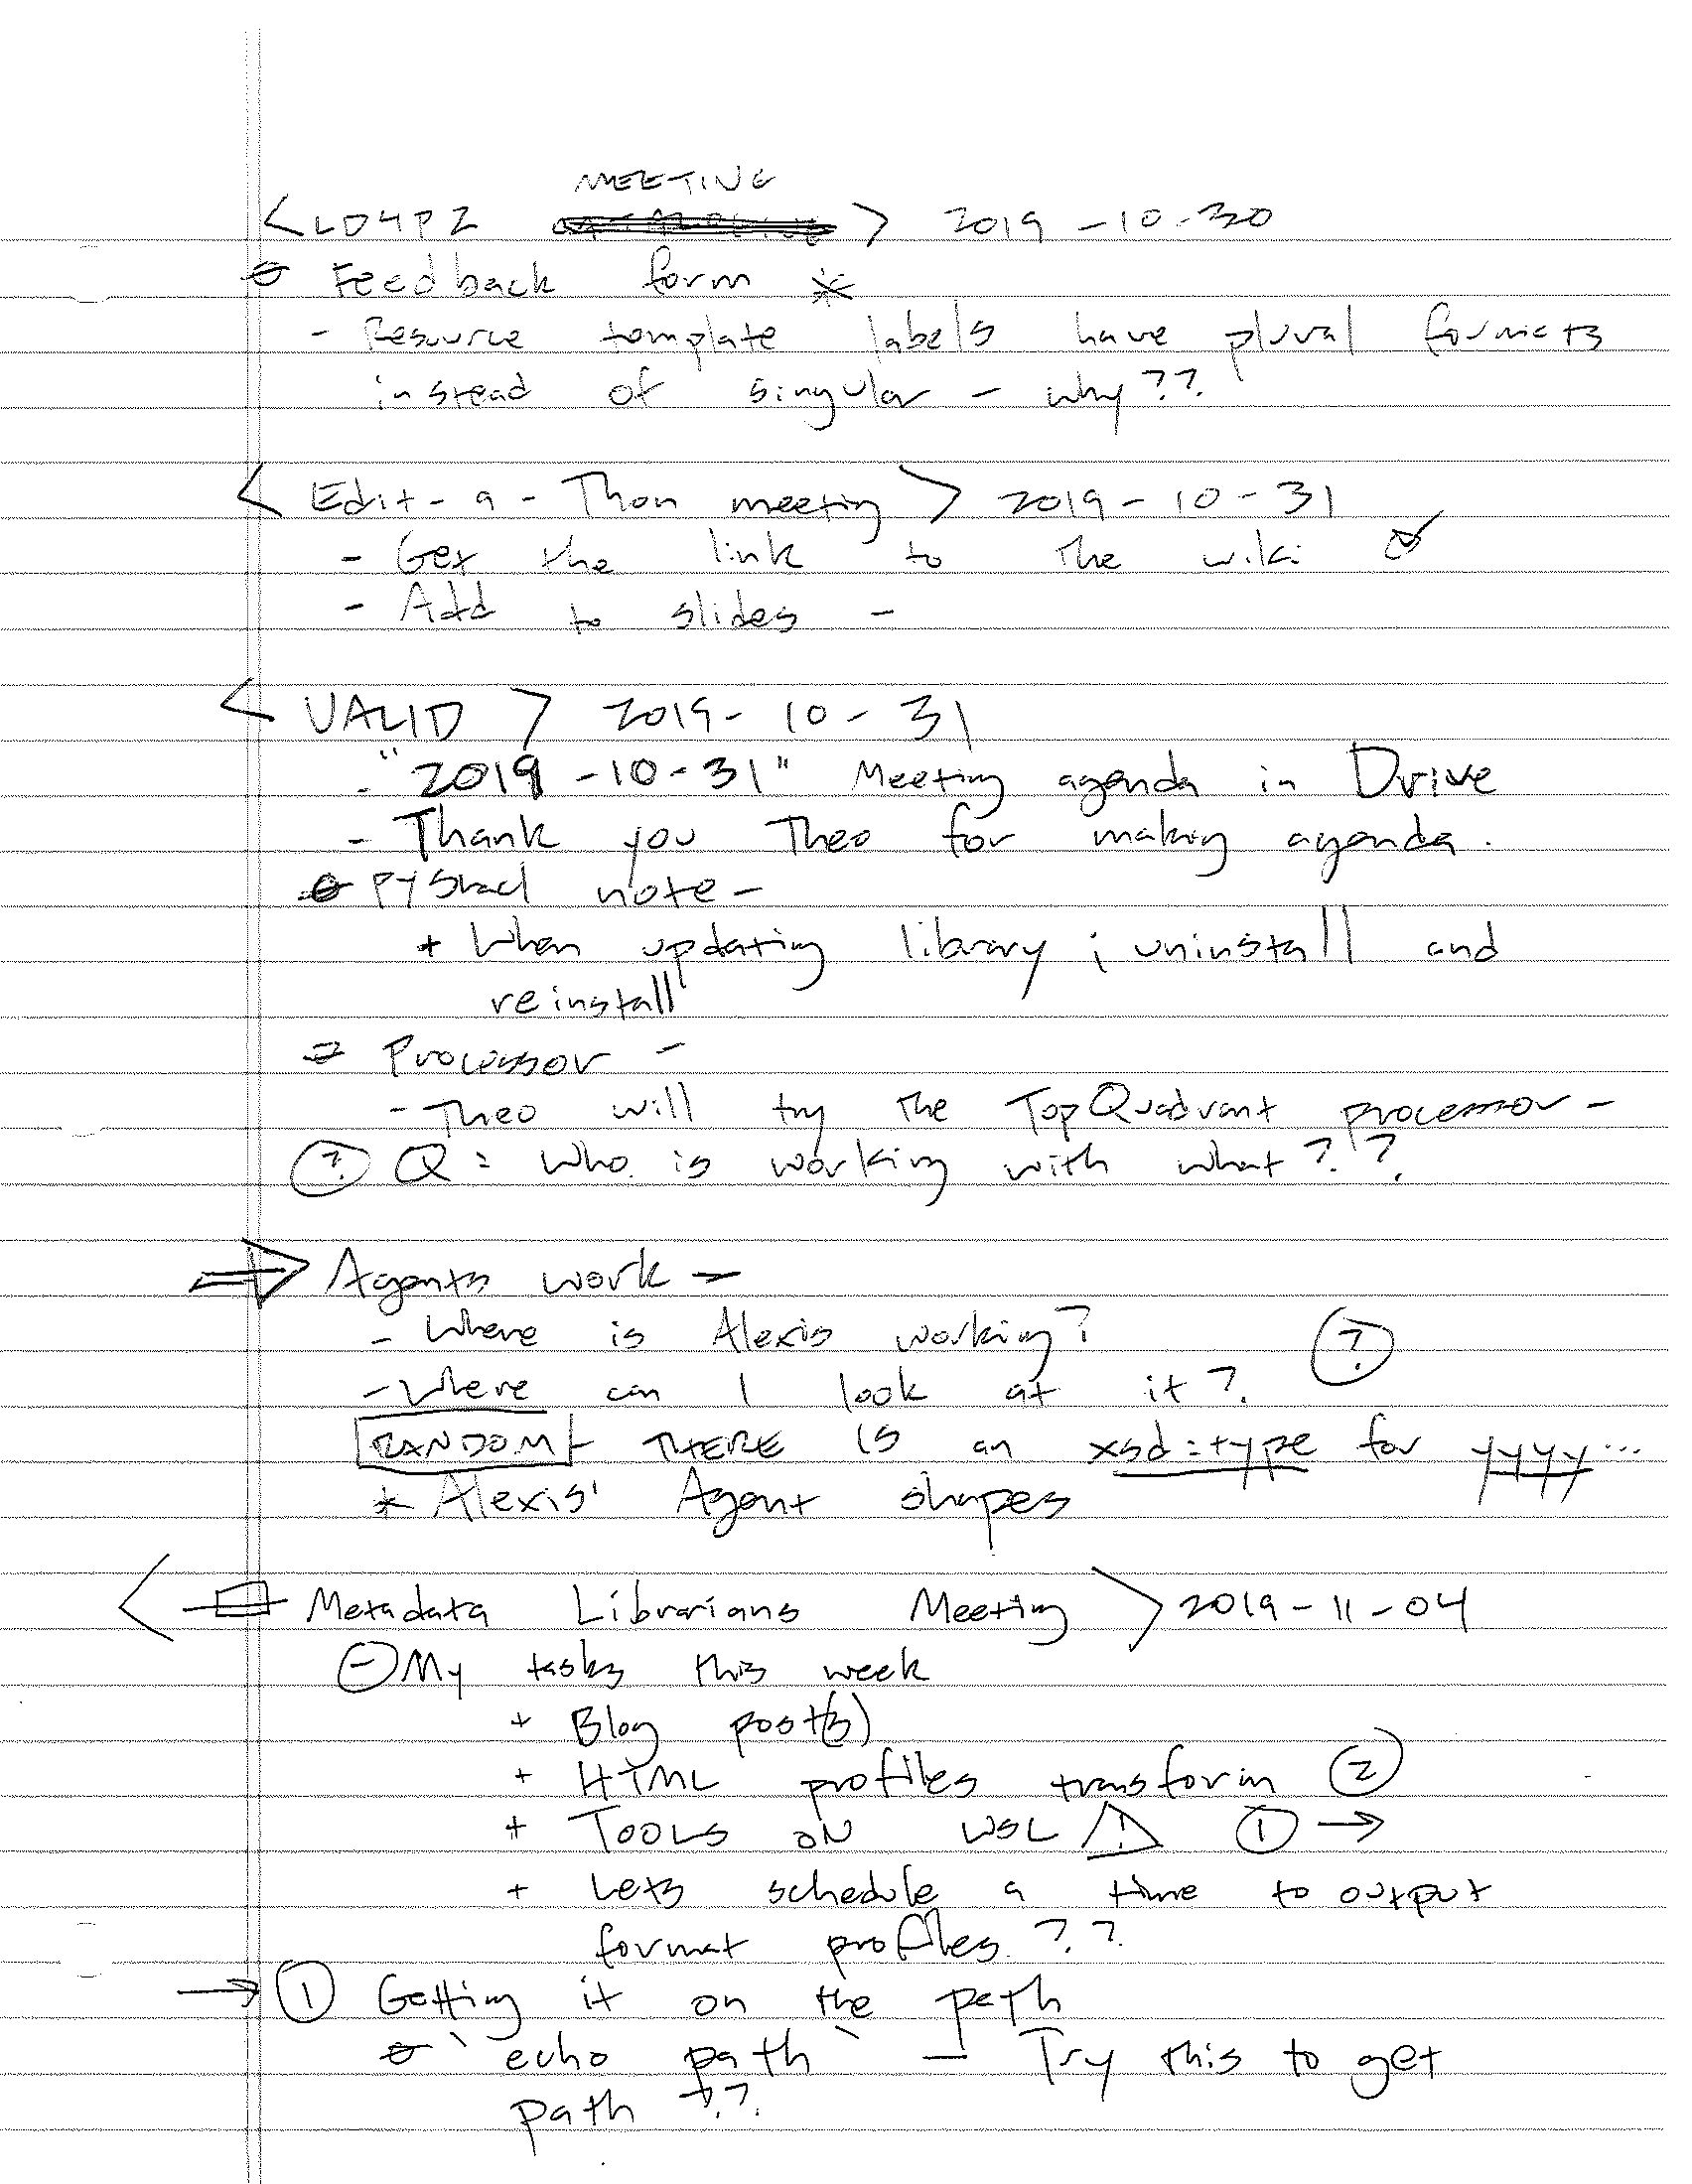 MEETING
<LD4P2 > 2019-10-30
Feedback form *
- Resource template labels have plural formats
instead of singular - why??
< Edit-a-Thon meeting > 2019-10-31
- Get the link to the wiki ✓
- Add to slides -
< VALID > 2019-10-31
- "2019-10-31" Meeting agenda in Drive
- Thank you Theo for making agenda.
PYShacl note -
+ When updating library; uninstall and
reinstall
Processor -
- Theo will try the TopQuadrant processor -
? Q: Who is working with what??
⇒ Agents work -
- Where is Alexis working? ?
- Where can I look at it?
RANDOM - THERE IS an xsd:type for yyyy...
* Alexis' Agent shapes
< Metadata Librarians Meeting > 2019-11-04
- My tasks this week
+ Blog post(s)
+ HTML profiles transform ②
+ TOOLS ON WSL ! ① →
+ Lets schedule a time to output
format profiles ??
→ ① Getting it on the path
`echo path` - Try this to get
path ??